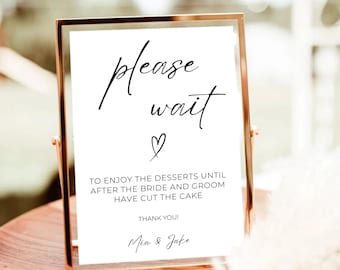 please
wait
TO ENJOY THE DESSERTS UNTIL
AFTER THE BRIDE AND GROOM
HAVE CUT THE CAKE
THANK YOU!
Mia & Jake